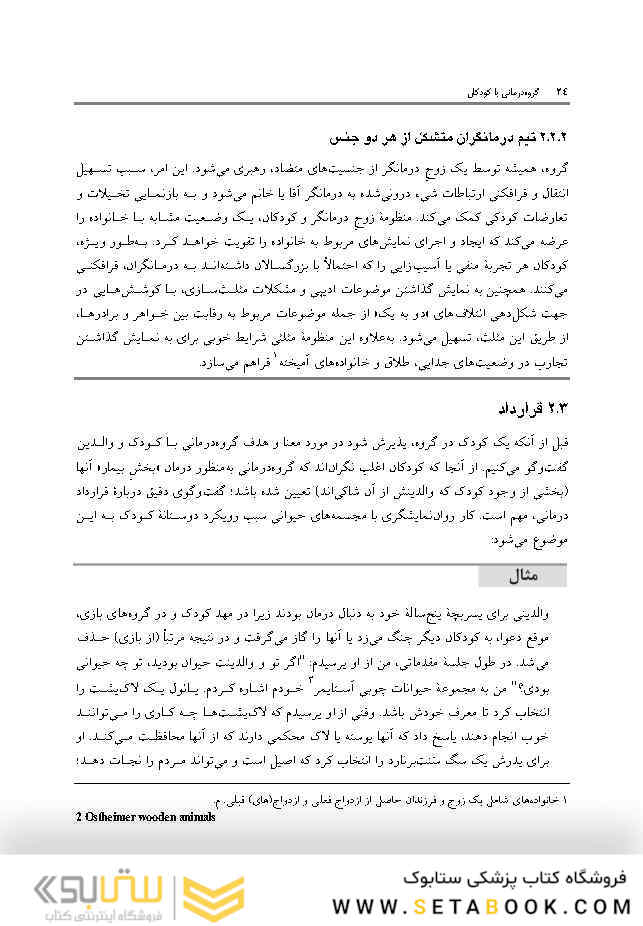 ۲٤ گروه‌درمانی با کودکان
۲.۲.۲ تیم درمانگران متشکل از هر دو جنس
گروه، همیشه توسط یک زوج درمانگر از جنسیت‌های متضاد، رهبری می‌شود. این امر، سبب تسهیل
انتقال و فرافکنی ارتباطات شیء درونی‌شده به درمانگر آقا یا خانم می‌شود و به بازنمایی تخیلات و
تعارضات کودکی کمک می‌کند. منظومهٔ زوج درمانگر و کودکان، یک وضعیت مشابه با خانواده را
عرضه می‌کند که ایجاد و اجرای نمایش‌های مربوط به خانواده را تقویت خواهد کرد. به‌طور ویژه،
کودکان هر تجربهٔ منفی یا آسیب‌زایی را که احتمالاً با بزرگسالان داشته‌اند به درمانگران، فرافکنی
می‌کنند. همچنین به نمایش گذاشتن موضوعات ادیپی و مشکلات مثلث‌سازی، با کوشش‌هایی در
جهت شکل‌دهی ائتلاف‌های «دو به یک» از جمله موضوعات مربوط به رقابت بین خواهر و برادرها،
از طریق این مثلث، تسهیل می‌شود. به‌علاوه این منظومهٔ مثلثی شرایط خوبی برای به نمایش گذاشتن
تجارب در وضعیت‌های جدایی، طلاق و خانواده‌های آمیخته۱ فراهم می‌سازد.
۲.۳ قرارداد
قبل از آنکه یک کودک در گروه، پذیرش شود در مورد معنا و هدف گروه‌درمانی با کودک و والدین
گفت‌وگو می‌کنیم. از آنجا که کودکان اغلب نگران‌اند که گروه‌درمانی به‌منظور درمان «بخش بیمار» آنها
(بخشی از وجود کودک که والدینش از آن شاکی‌اند) تعیین شده باشد؛ گفت‌وگوی دقیق دربارهٔ قرارداد
درمانی، مهم است. کار روان‌نمایشگری با مجسمه‌های حیوانی سبب رویکرد دوستانهٔ کودک به این
موضوع می‌شود:
مثال
والدینی برای پسربچهٔ پنج‌سالهٔ خود به دنبال درمان بودند زیرا در مهد کودک و در گروه‌های بازی،
موقع دعوا، به کودکان دیگر چنگ می‌زد یا آنها را گاز می‌گرفت و در نتیجه مرتباً (از بازی) حذف
می‌شد. در طول جلسهٔ مقدماتی، من از او پرسیدم: "اگر تو و والدینت حیوان بودید، تو چه حیوانی
بودی؟" من به مجموعهٔ حیوانات چوبی آستایمر۲ خودم اشاره کردم. پائول یک لاک‌پشت را
انتخاب کرد تا معرف خودش باشد. وقتی از او پرسیدم که لاک‌پشت‌ها چه کاری را می‌توانند
خوب انجام دهند، پاسخ داد که آنها پوسته یا لاک محکمی دارند که از آنها محافظت می‌کند. او
برای پدرش یک سگ سنت‌برنارد را انتخاب کرد که اصیل است و می‌تواند مردم را نجات دهد؛
۱ خانواده‌های شامل یک زوج و فرزندان حاصل از ازدواج فعلی و ازدواج(های) قبلی.م.
2 Ostheimer wooden animals
ستابوک
فروشگاه اینترنتی کتاب
فروشگاه کتاب پزشکی ستابوک
WWW.SETABOOK.COM